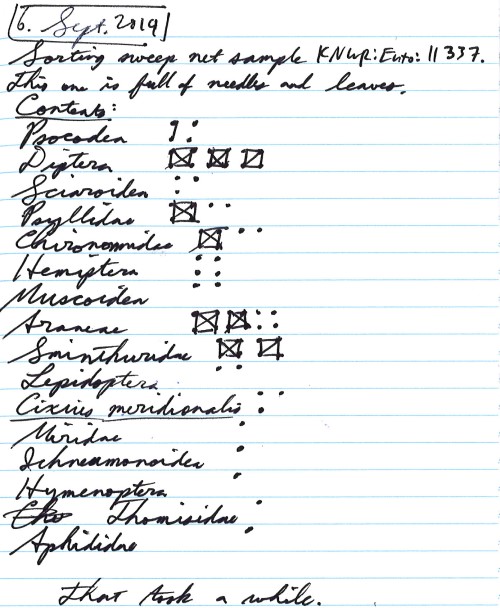 6. Sept. 2019
Sorting sweep net sample KNWR:Ento:11337.
This one is full of needles and leaves.
Contents:
Psocodea
Diptera
Sciaroidea
Psyllidae
Chironomidae
Hemiptera
Muscoidea
Araneae
Sminthuridae
Lepidoptera
Cixius meridionalis
Miridae
Ichneumonoidea
Hymenoptera
Thomisidae
Aphididae
That took a while.